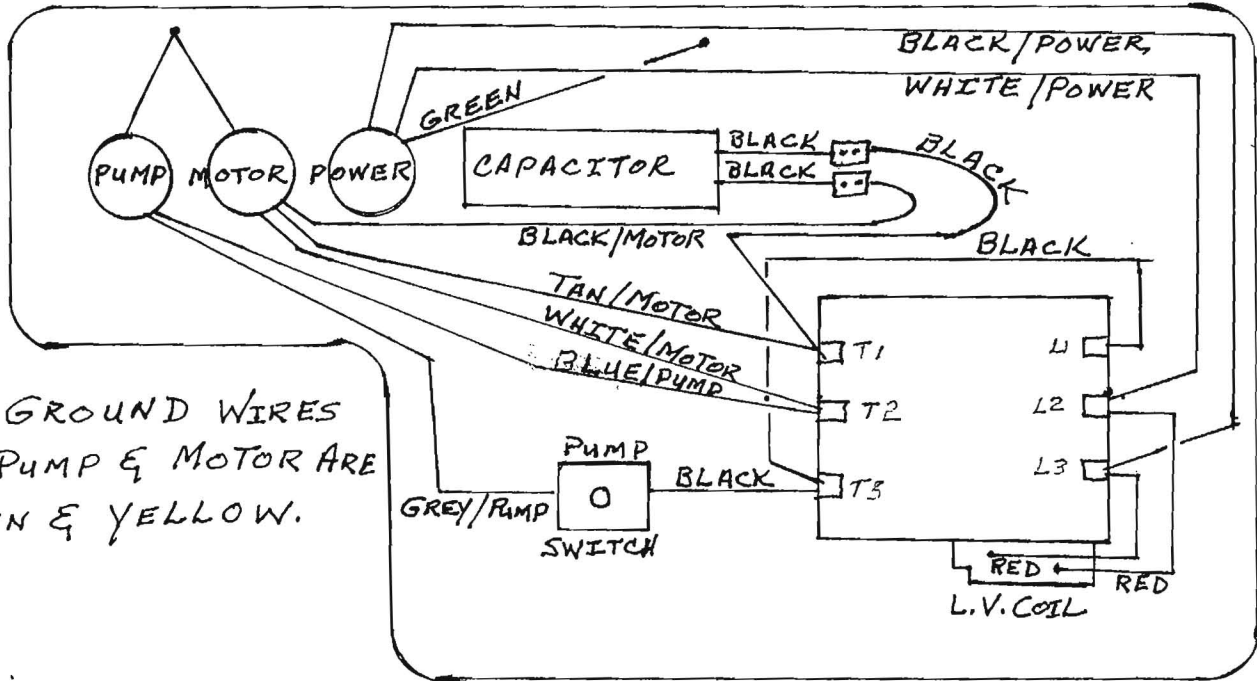 BLACK/POWER,
WHITE/POWER
GREEN
PUMP
MOTOR
POWER
CAPACITOR
BLACK
BLACK
BLACK
BLACK/MOTOR
BLACK
TAN/MOTOR
WHITE/MOTOR
BLUE/PUMP
T1
L1
T2
L2
T3
L3
GROUND WIRES
PUMP & MOTOR ARE
& YELLOW.
PUMP
SWITCH
BLACK
GREY/PUMP
RED
RED
L.V. COIL